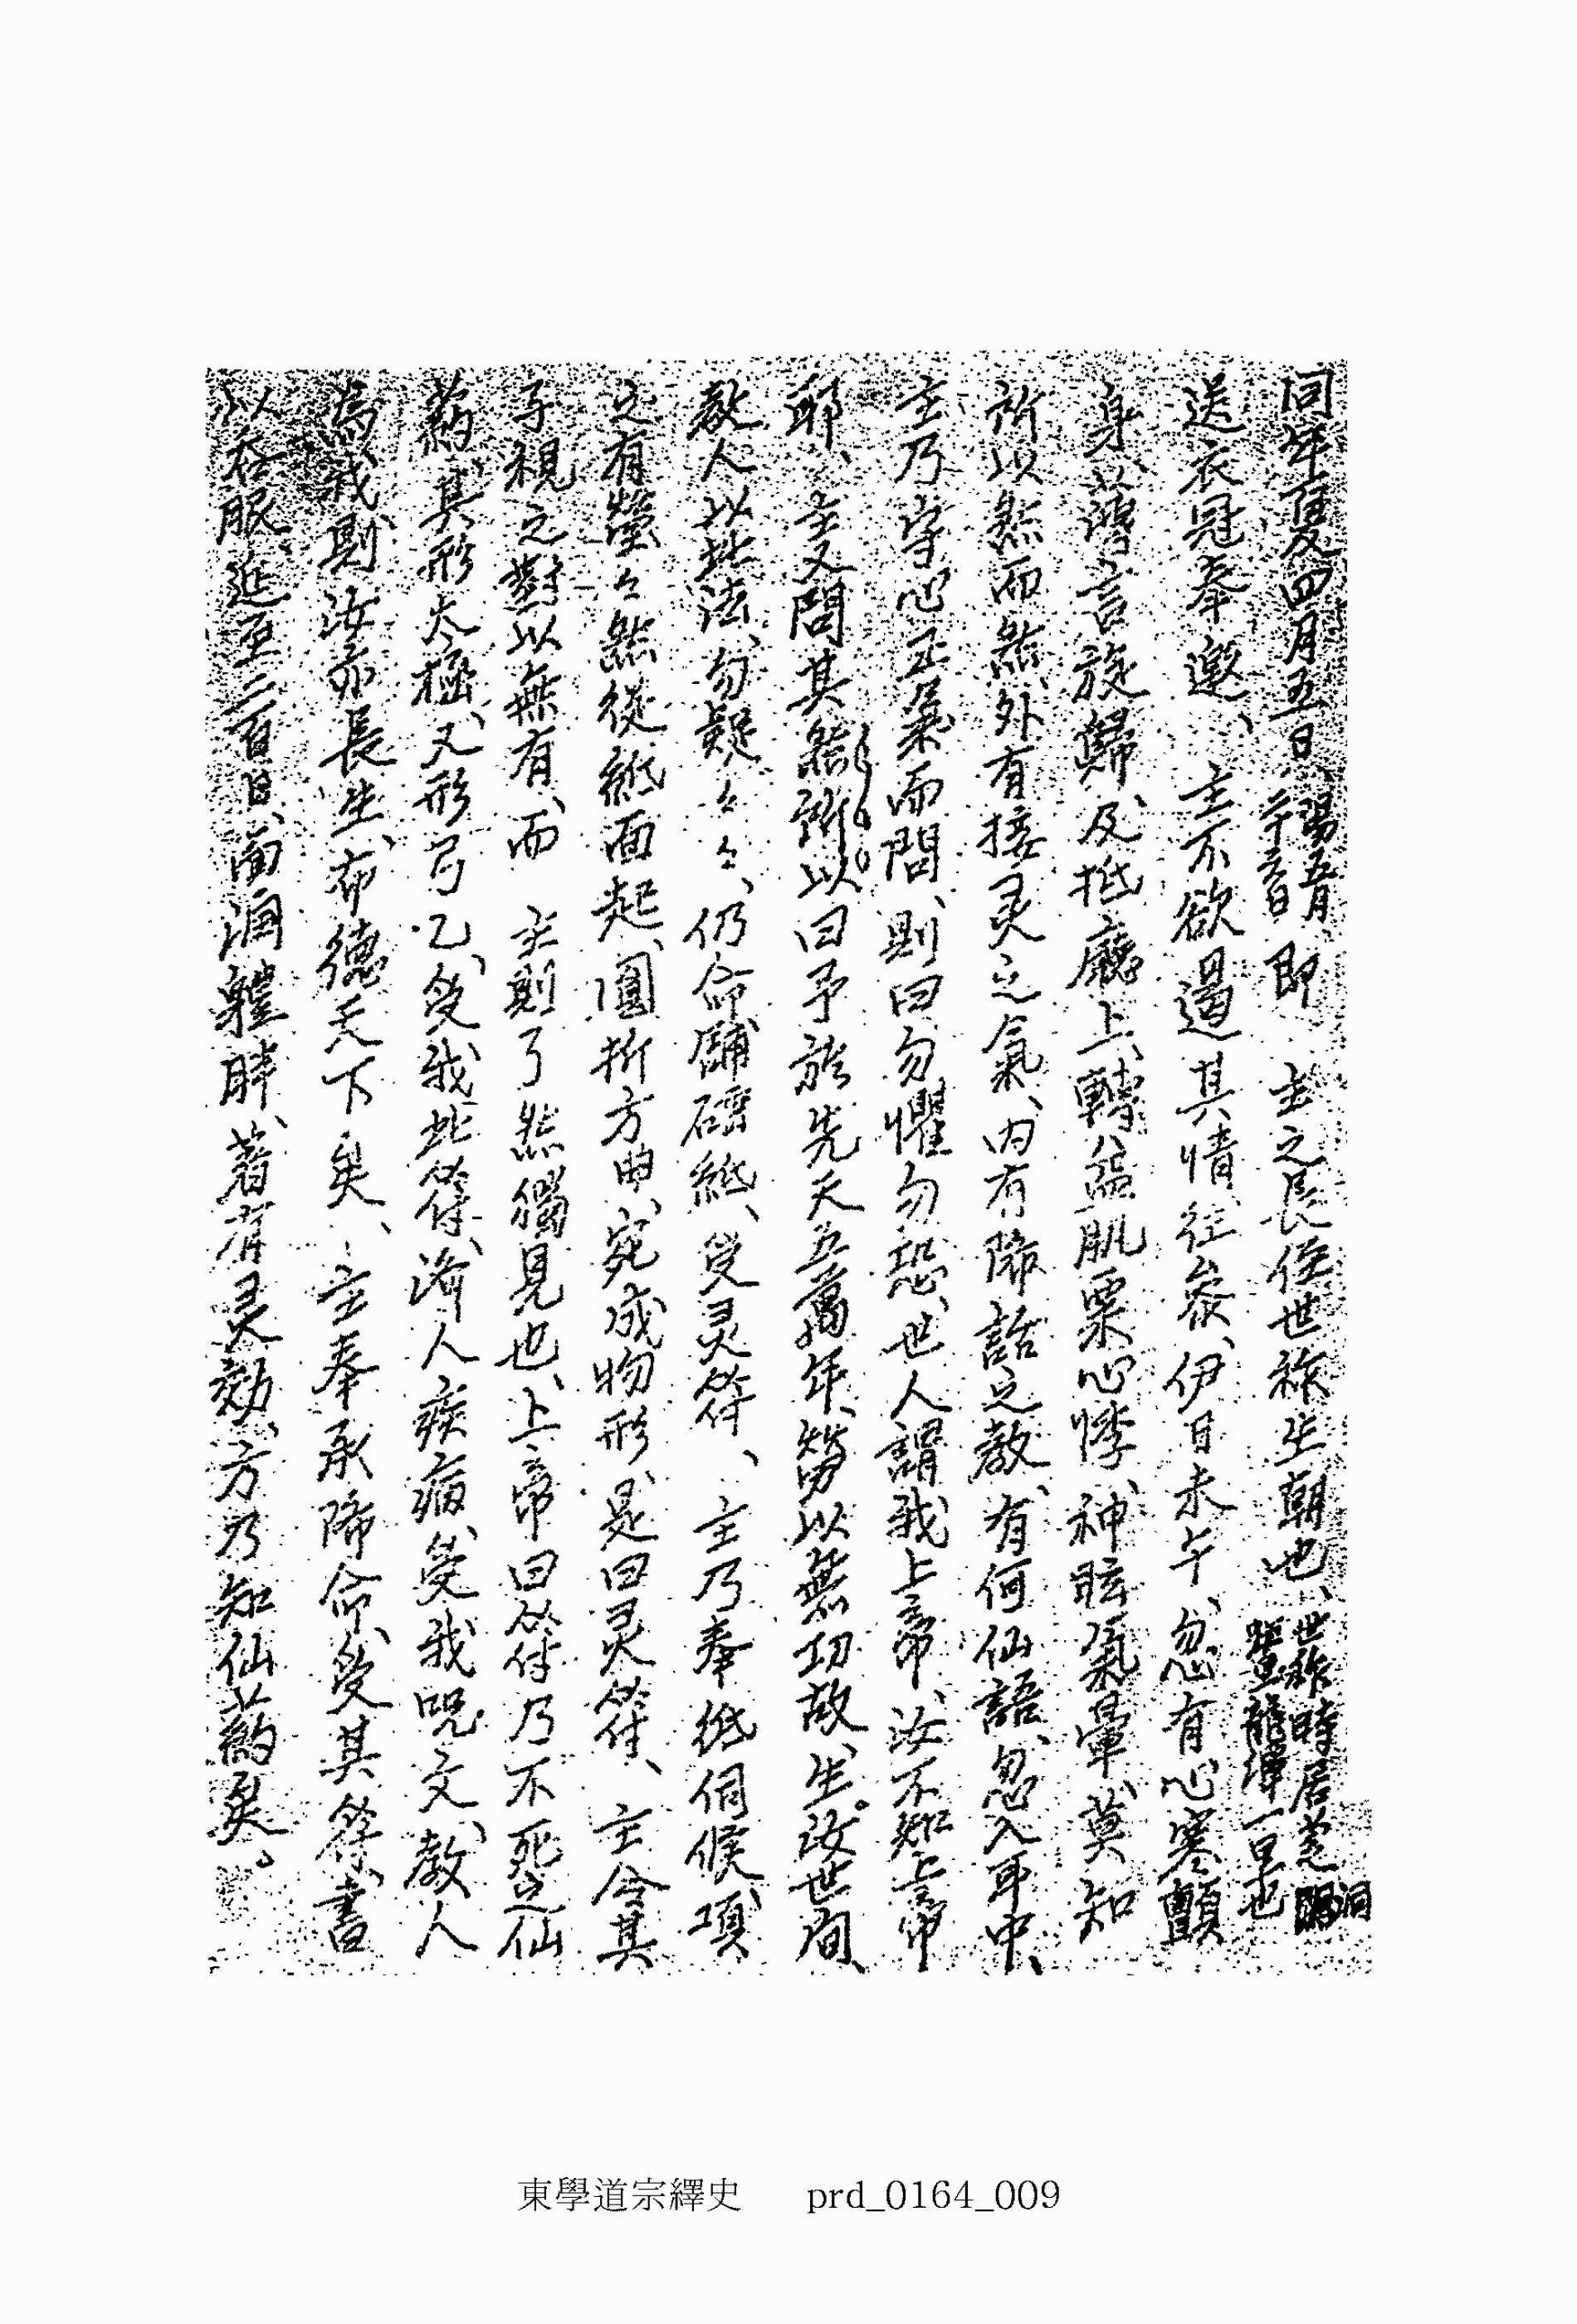 同年夏四月五日、陽五月二十五日、即 主之長侄世祚生朝也、世祚時居芝洞距龍潭一里也
送衣冠奉邀、主不欲遏其情、往參、伊日未午、忽有心寒顫
身、薄言旋歸、及抵廳上、轉益肌粟心悸、神眩氣暈、莫知
所以然而然、外有接灵之氣、內有降話之敎、有何仙語、忽入耳中、
主乃守心正氣而問、則曰勿懼勿恐、世人謂我上帝、汝不知上帝
耶、主又問其然所以曰予於先天五萬年、勞以無功故、生汝世間、
敎人以此法、勿疑々々、仍命鋪硾紙、受灵符、主乃奉紙伺候、頃
之有螢々然從紙面起、圓折方申、宛成物形、是曰灵符、主令其
子視之、對以無有、而 主則了然獨見也、上帝曰符乃不死之仙
葯、其形太極、又形弓乙、受我此符、濟人疾病、受我呪文、敎人
爲我則汝亦長生、布德天下矣、主奉承降命、受其符、書
以呑服、延至二百日、面潤軆胖、著有灵効、方乃知仙葯矣。